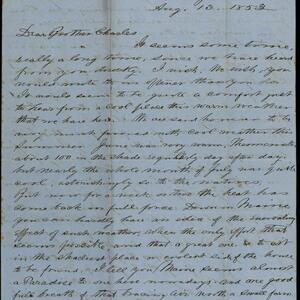 Aug. 10. 1853
Dear Brother Charles
It seems some time,
really a long time, since we have heard
from you directly. I wish, We wish, you
would write us oftener than you do.
It would seem to be quite a comfort just
to hear from a cool place this warm weather
that we have here. We are said however to be
very much favored with cool weather this
summer. June was very warm, Thermometer
about 100 in the shade regularly day after day.
but nearly the whole month of July was quite
cool, astonishingly so to the natives.
But now for a week or two the heat has
come back in full force. Down in Maine
you can hardly have an idea of the enervating
effect of such weather, when the only effort that
seems possible and that a great one is to sit
in the shadiest place in coolest side of the house
to be found. I tell you Maine seems almost
a Paradise to one here nowadays and one good
full breath of that bracing air worth a small farm